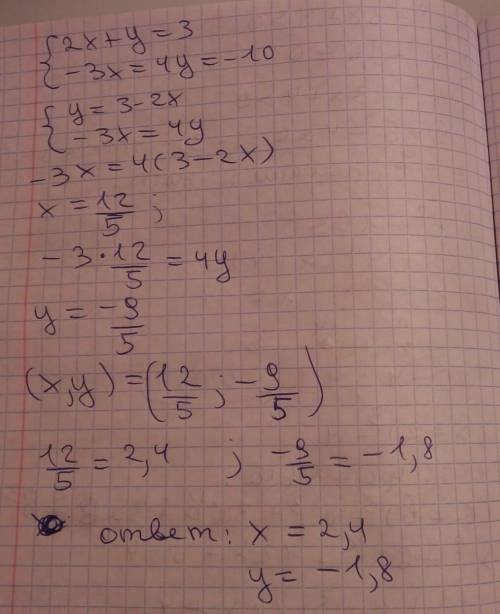 {2x+y=3
{-3x=4y=-10
{y=3-2x
{-3x=4y
-3x=4(3-2x)
x=12/5;
-3·12/5=4y
y=-9/5
(x,y)=(12/5;-9/5)
12/5=2,4 ; -9/5=-1,8
ответ: x=2,4
y=-1,8